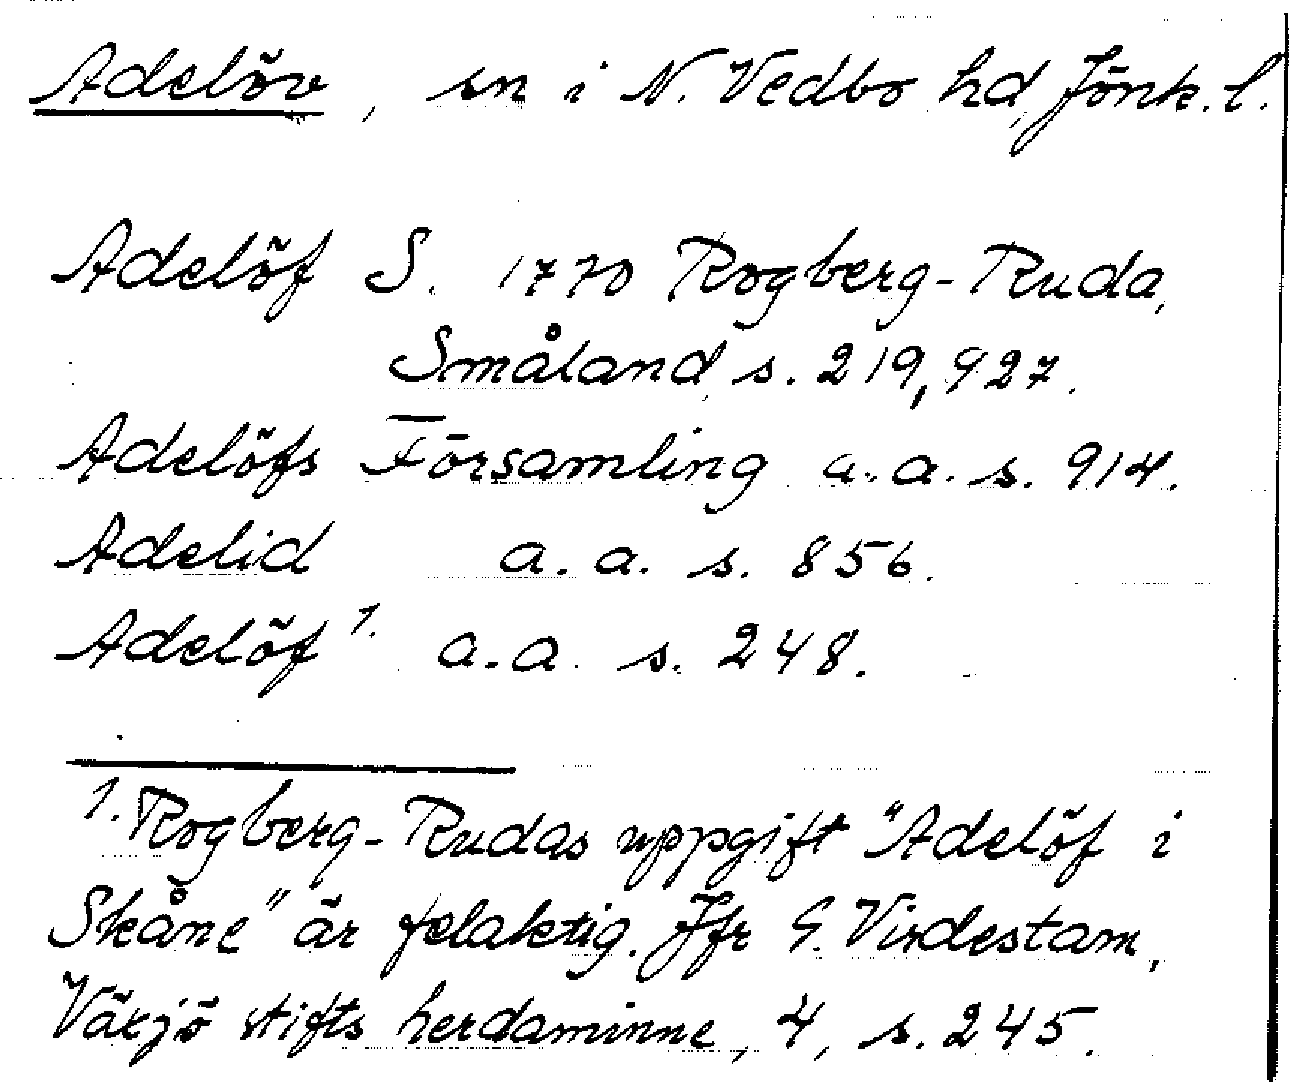 Adelöv, sn i N. Vedbo hd, Jönk. l.
Adelöf S. 1770 Rogberg-Ruda,
Småland, s. 219, 927.
Adelöfs Församling a.a. s. 914.
Adelid a.a. s. 856.
Adelöf 1. a.a. s. 248.
1. Rogberg-Rudas uppgift "Adelöf i
Skåne" är felaktig. Jfr G. Virdestam,
Växjö stifts herdaminne, 4, s. 245.